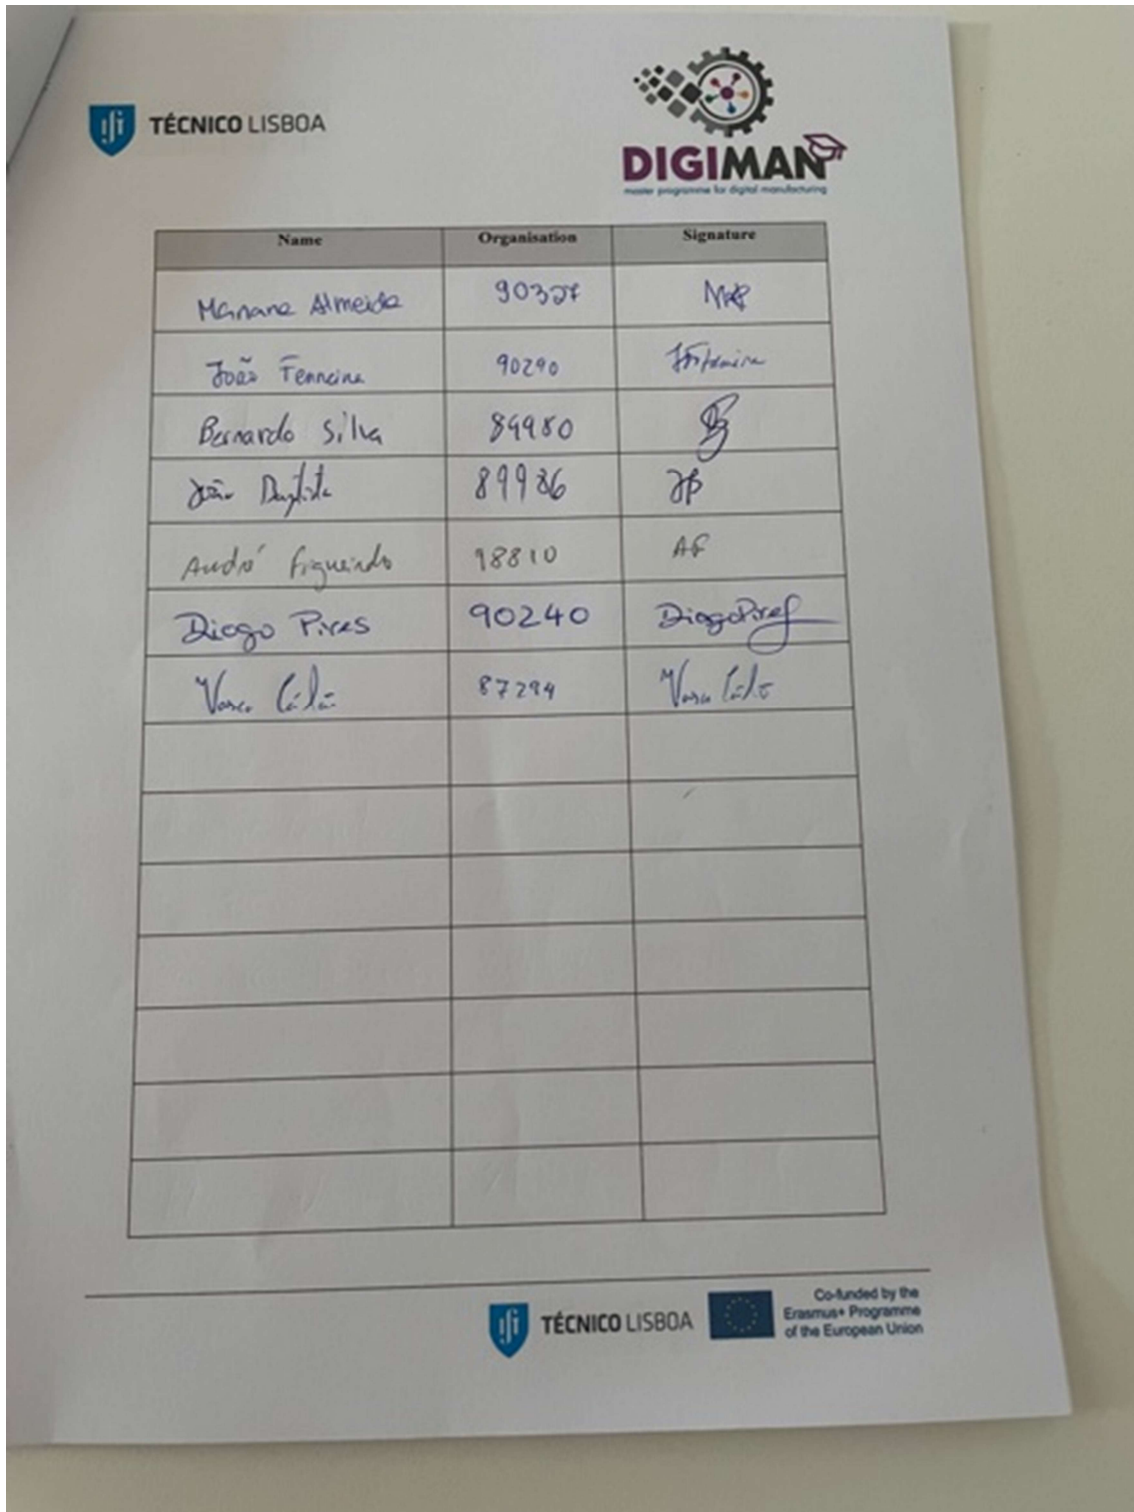 TÉCNICO LISBOA
DIGIMAN
master programme for digital manufacturing
Name Organisation Signature
Mariana Almeida 90327
João Ferreira 90290
Bernardo Silva 89980
João Baptista 89986 JB
André Figueiredo 98810 AF
Diogo Pires 90240 Diogo Pires
Vasco 87294 Vasco
TÉCNICO LISBOA
Co-funded by the
Erasmus+ Programme
of the European Union